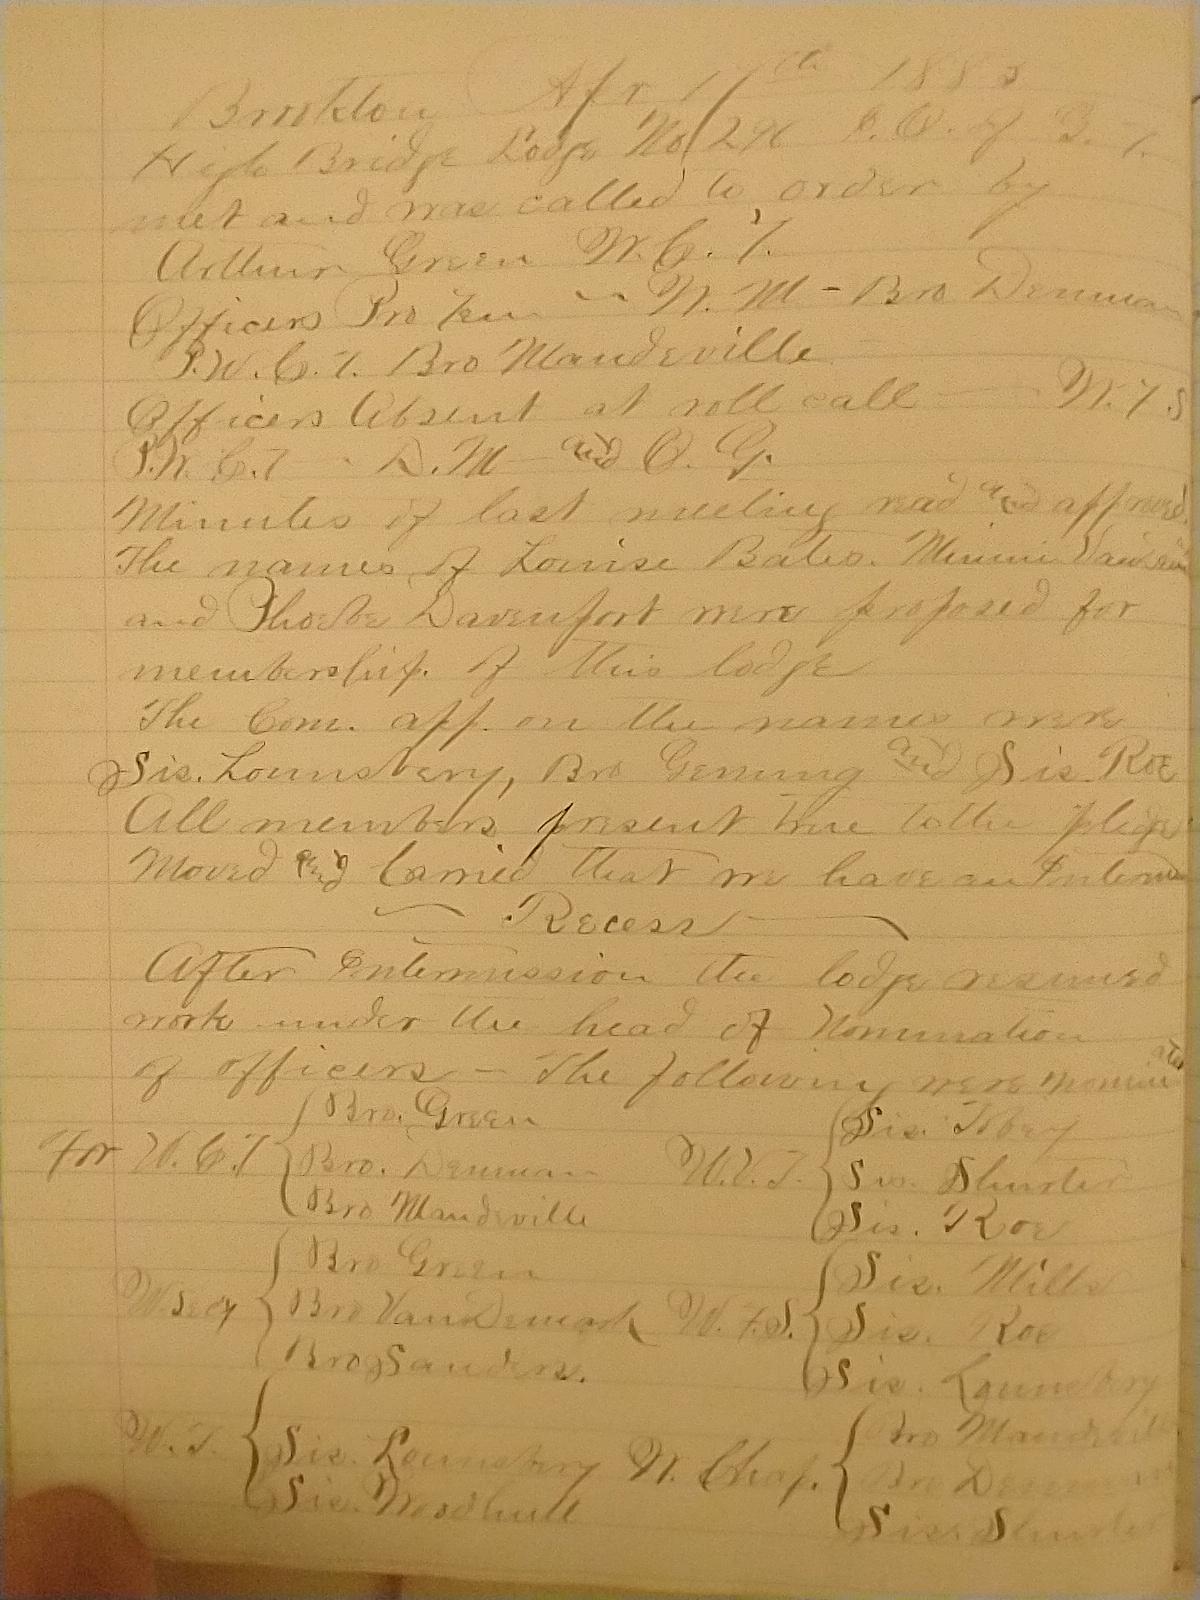 Brookton Apr 17th 1883
High Bridge Lodge No 296 I. O. of G. T.
met and was called to order by
Arthur Green W. C. T.
Officers Pro Tem — W. M - Bro Denman
P. W. C. T. Bro Mandeville
Officers Absent at roll call — W. F. S
P. W. C. T - D. M and O. G.
Minutes of last meeting read and approved.
The names of Louise Bates. Minnie
and Phoebe Davenport were proposed for
membership. of this lodge
The Com. app. on the names were
Sis. Lounsbery, Bro Genung and Sis Roe
All members present true to the pledge
Moved and Carried that we have an
Recess
After Intermission the lodge resumed
work under the head of Nomination
of officers - The following were Nominated
For W. C. T Bro. Green W. V. T. Sis. Tobey
Bro. Denman Sis. Shurter
Bro Mandeville Sis. Roe
W. Secy Bro Green W. F. S. Sis. Mills
Bro VanDemark Sis. Roe
Bro Sanders. Sis. Lounsbery
W. T. Sis. Lounsbery W. Chap. Bro Mandeville
Sis. Woodhull Bro Denman
Sis. Shurter